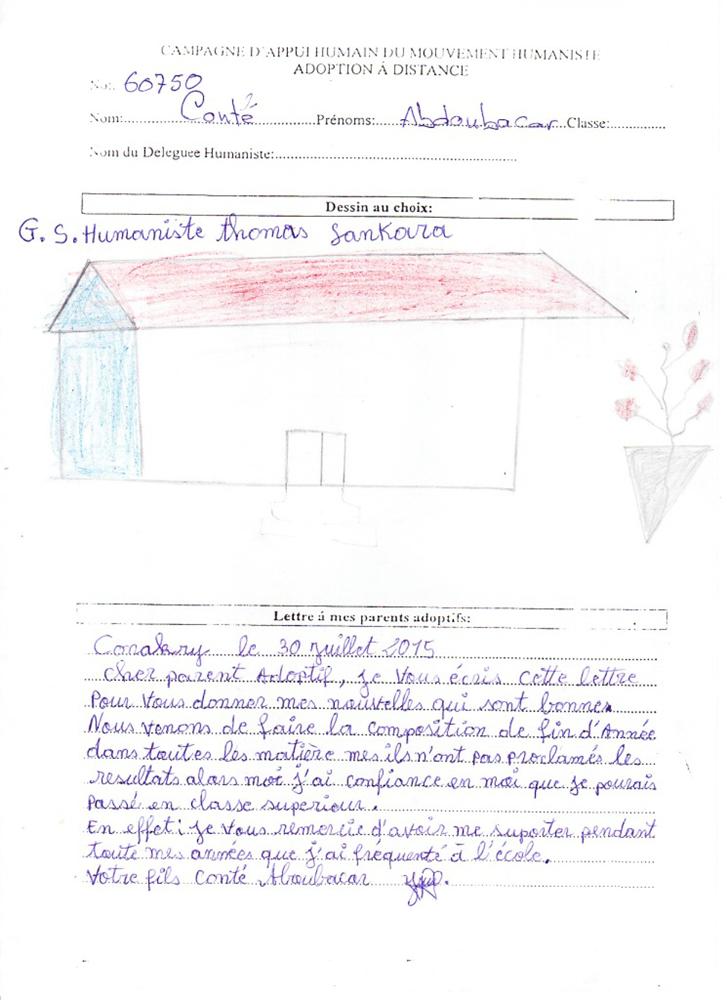 CAMPAGNE D'APPUI HUMAIN DU MOUVEMENT HUMANISTE
ADOPTION À DISTANCE
No:. 60750
Nom: Conté Prénoms: Abdoubacar Classe:
Nom du Deleguee Humaniste:
Dessin au choix:
G. S. Humaniste thomas Sankara
Lettre á mes parents adoptifs:
Conakry le 30 juillet 2015
cher parent Adoptif, je vous écris cette lettre
Pour vous donner mes nouvelles qui sont bonnes
Nous venons de faire la composition de fin d'Année
dans toutes les matière mes ils n'ont pas proclamés les
resultats alors moi j'ai confiance en moi que je pourais
Passé en classe superieur.
En effet: je vous remercie d'avoir me suporter pendant
toute mes années que j'ai fréquenté à l'école.
Votre fils Conté Aboubacar